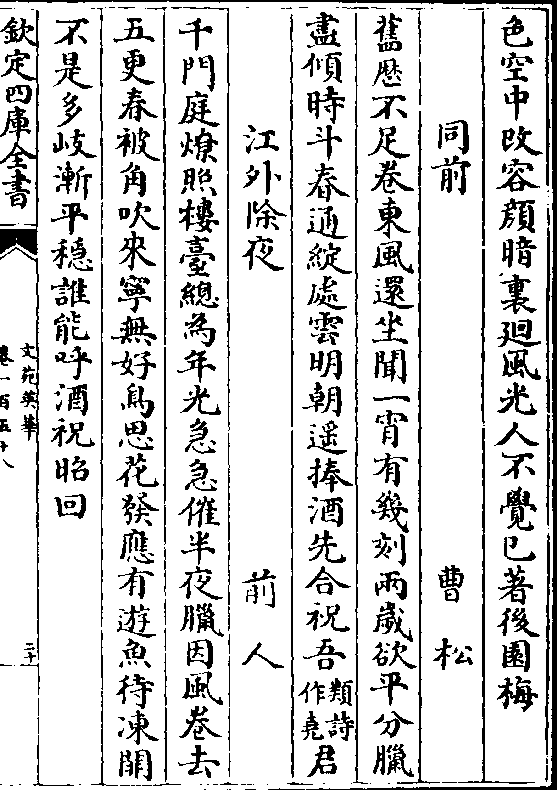 色空中改容顔暗裏廻風光人不覺已著後園梅
同前 曹松
舊歴不足卷東風還坐聞一宵有幾刻兩歲欲平分臘
盡傾時斗春通綻處雲明朝遥捧酒先合祝吾類詩作堯君
江外除夜 前人
千門庭燎照樓臺總為年光急急催半夜臘因風卷去
五更春被角吹來寧無好鳥思花發應有遊魚待凍開
不是多岐漸平穩誰能呼酒祝昭回
欽定四庫全書
文苑英華
卷一百五十八
二十